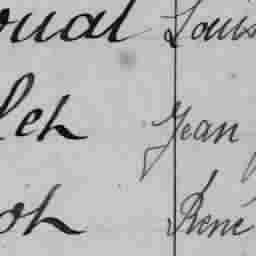 oual Louis
lch Jean
oh René